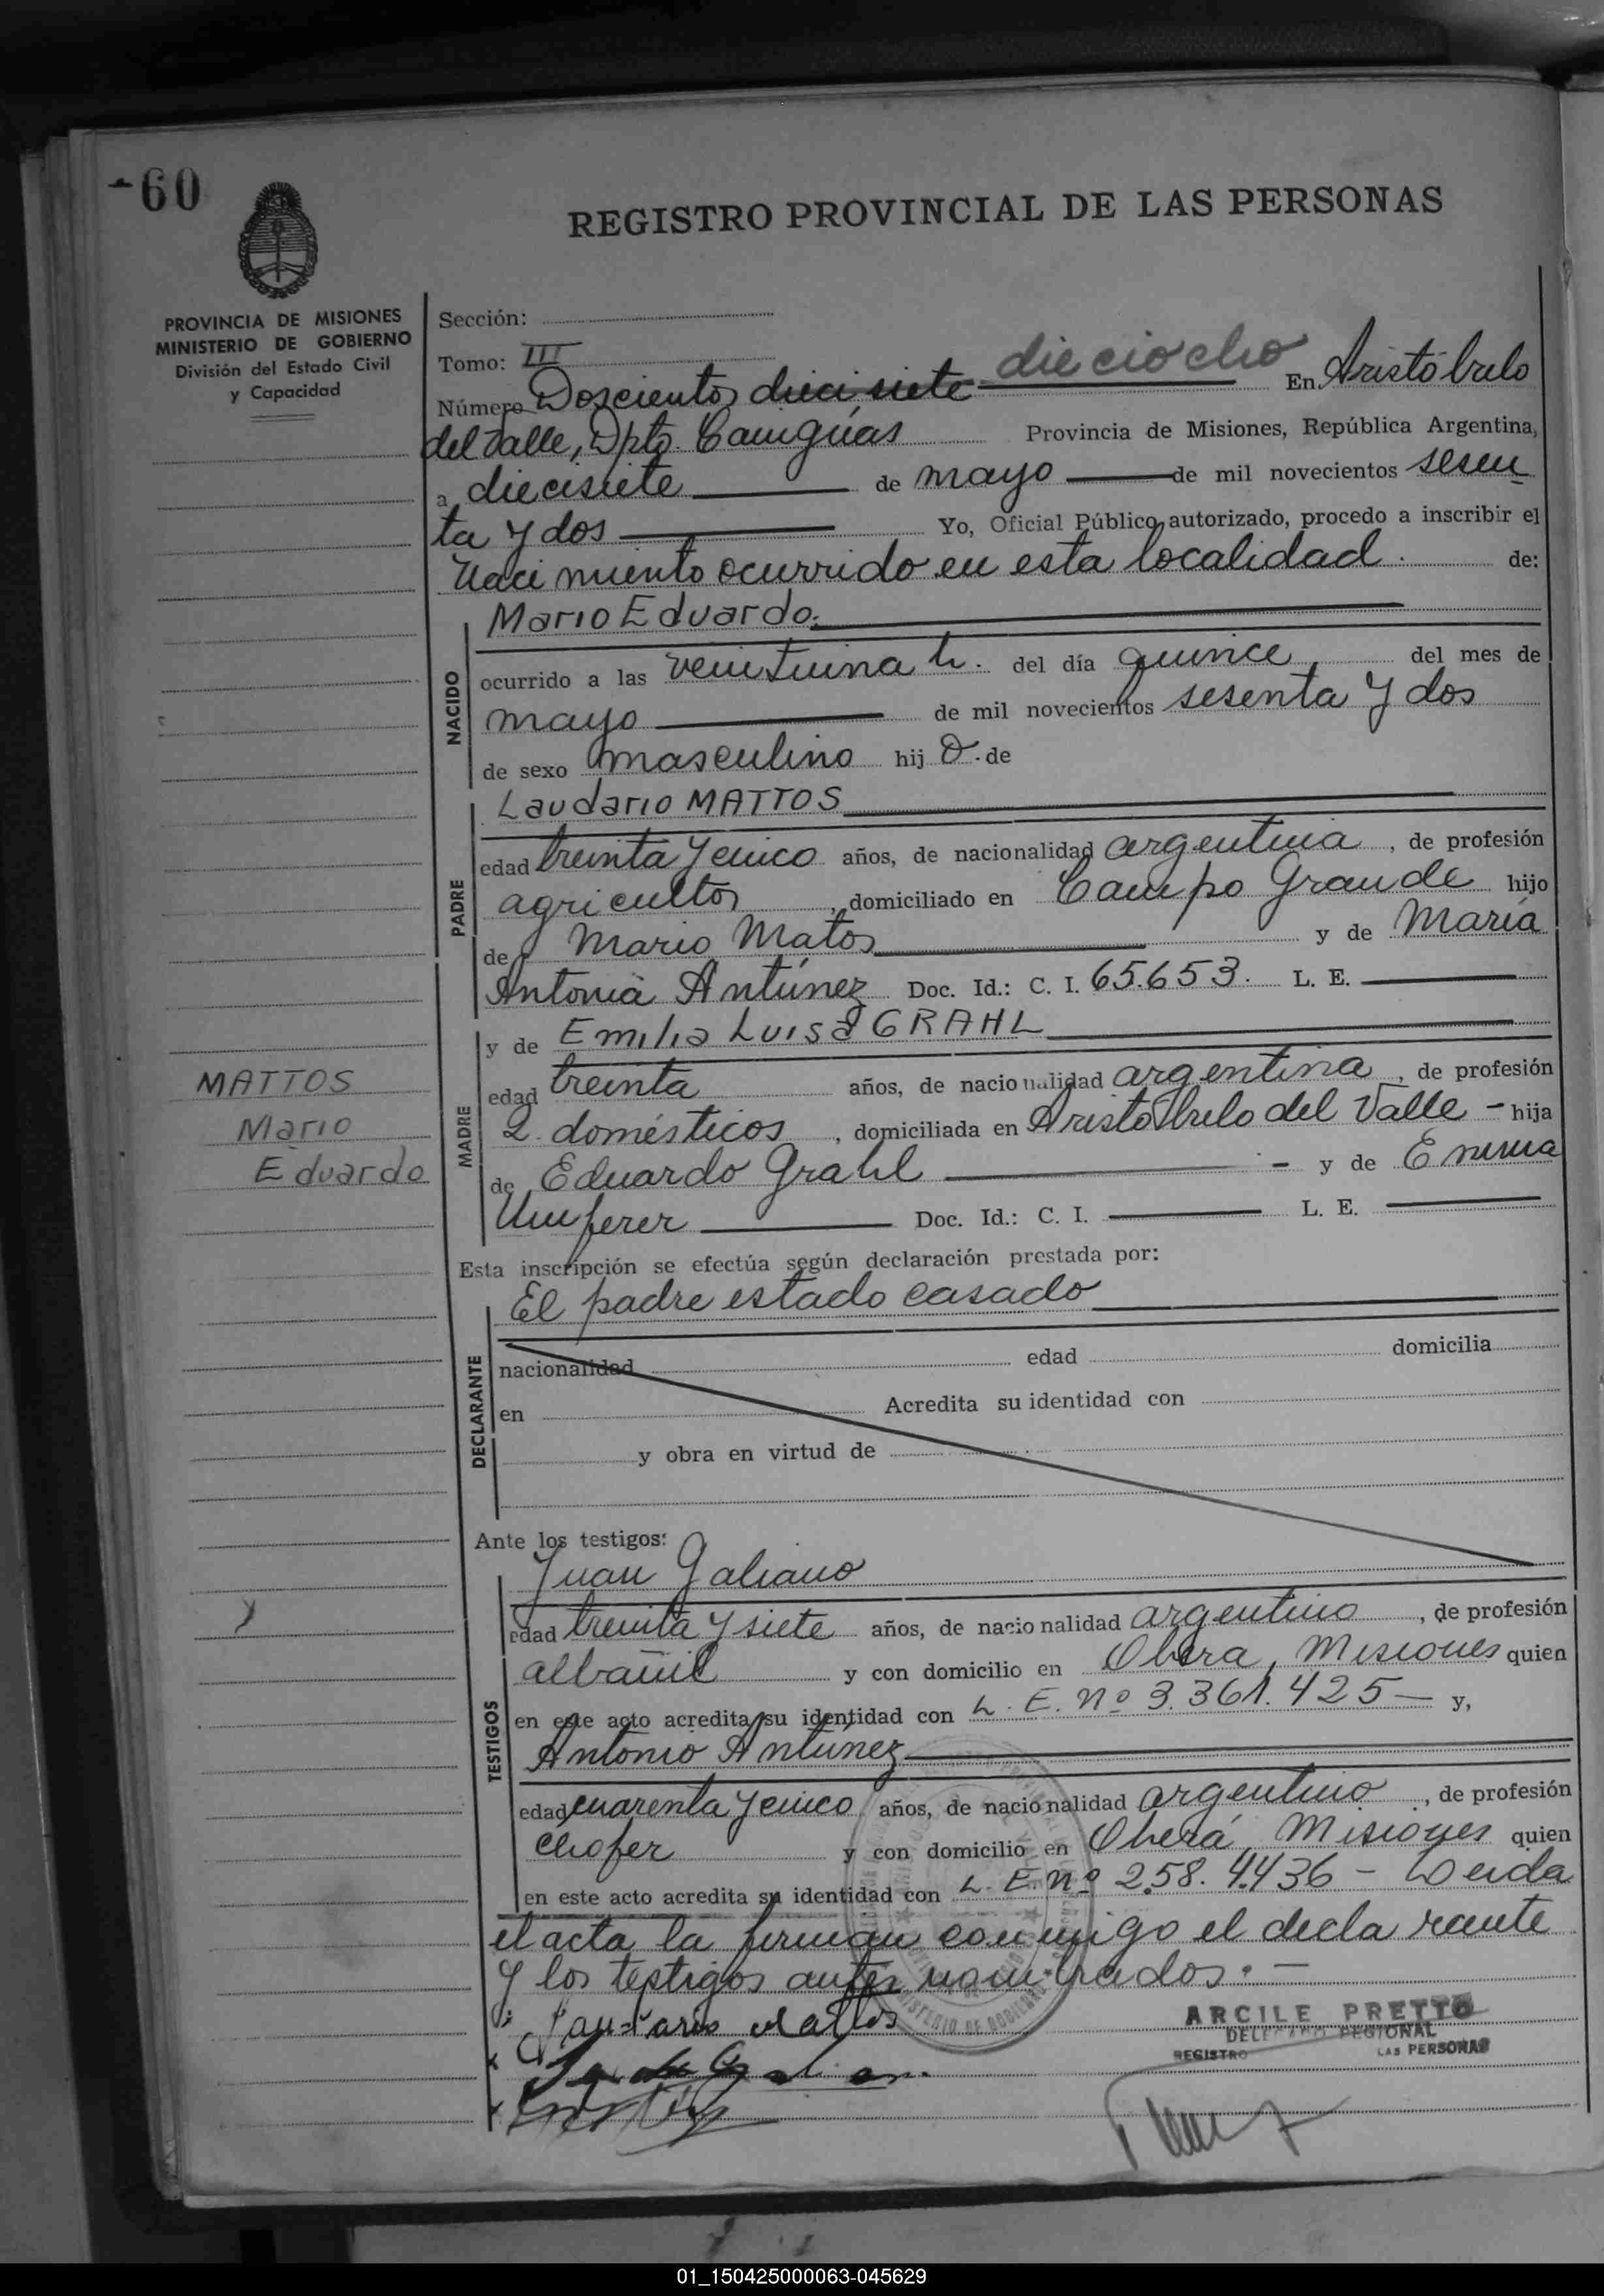 60
REGISTRO PROVINCIAL DE LAS PERSONAS
PROVINCIA DE MISIONES
MINISTERIO DE GOBIERNO
División del Estado Civil
y Capacidad
Sección:
Tomo: III
Número Doscientos diecisiete dieciocho En Aristóbulo
del Valle, Dpto. Cainguás Provincia de Misiones, República Argentina,
a diecisiete de mayo de mil novecientos sesen
ta y dos Yo, Oficial Público autorizado, procedo a inscribir el
Nacimiento ocurrido en esta localidad. de:
NACIDO
Mario Eduardo.
ocurrido a las veintiuna h. del día quince del mes de
mayo de mil novecientos sesenta y dos
de sexo masculino hijo. de
PADRE
Laudario MATTOS
edad treinta y cinco años, de nacionalidad argentina, de profesión
agricultor, domiciliado en Campo Grande hijo
de Mario Matos y de María
Antonia Antúnez Doc. Id.: C. I. 65.653. L. E.
MADRE
y de Emilia Luisa GRAHL
edad treinta años, de nacionalidad argentina, de profesión
Q. domésticos, domiciliada en Aristóbulo del Valle - hija
de Eduardo Grahl - y de Emma
Umferer Doc. Id.: C. I. L. E.
MATTOS
Mario
Eduardo
Esta inscripción se efectúa según declaración prestada por:
DECLARANTE
El padre estado casado
nacionalidad edad domicilia
en Acredita su identidad con
y obra en virtud de
Ante los testigos:
TESTIGOS
Juan Galiano
edad treinta y siete años, de nacionalidad argentino, de profesión
albañil y con domicilio en Obera, Misiones quien
en este acto acredita su identidad con L. E. Nº 3.361.425 - y,
Antonio Antúnez
edad cuarenta y cinco años, de nacionalidad argentino, de profesión
chofer y con domicilio en Oberá Misiones quien
en este acto acredita su identidad con L. E. Nº 2.58.4.436 - Leida
el acta la firman conmigo el declarante
y los testigos antes nombrados. -
Laudario Mattos
ARCILE PRETTO
DELEGADO REGIONAL
REGISTRO LAS PERSONAS
01_150425000063-045629